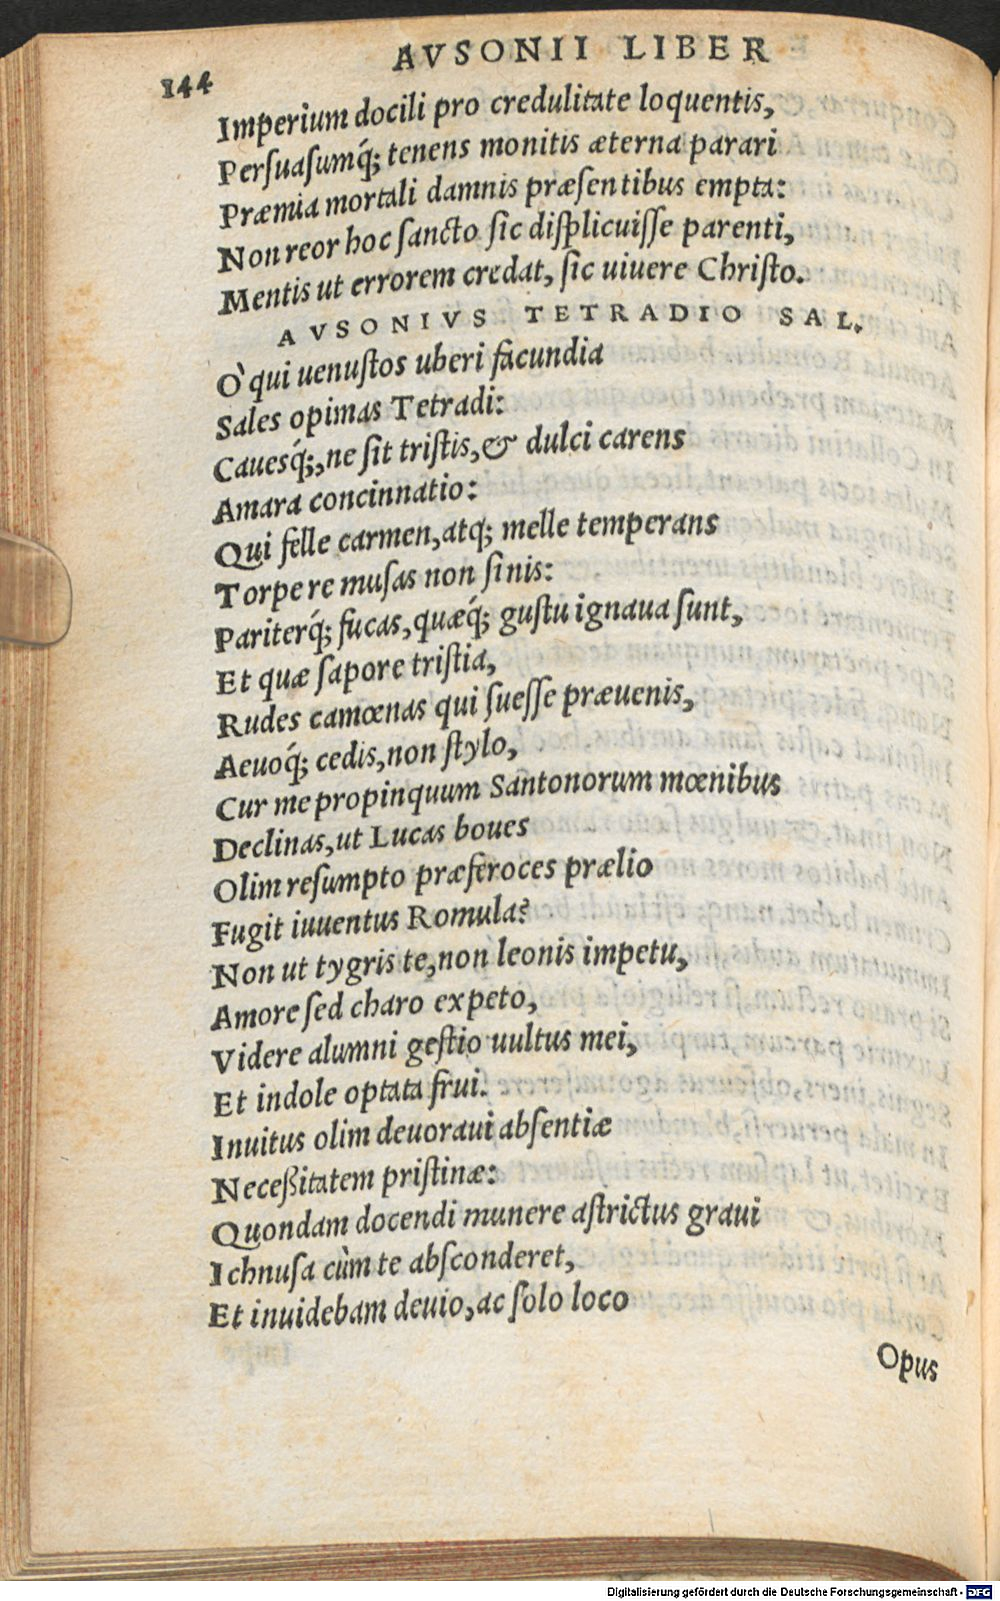 144
AVSONII LIBER
Imperium docili pro credulitate loquentis,
Persuasumq́; tenens monitis æterna parari
Præmia mortali damnis præsentibus empta:
Non reor hoc sancto sic displicuisse parenti,
Mentis ut errorem credat, sic uiuere Christo.
AVSONIVS TETRADIO SAL.
O' qui uenustos uberi facundia
Sales opimas Tetradi:
Cauesq́;, ne sit tristis, & dulci carens
Amara concinnatio:
Qui felle carmen, atq; melle temperans
Torpere musas non sinis:
Pariterq́; fucas, quæq́; gustu ignaua sunt,
Et quæ sapore tristia,
Rudes camœnas qui suesse præuenis,
Aeuoq́; cedis, non stylo,
Cur me propinquum Santonorum mœnibus
Declinas, ut Lucas boues
Olim resumpto præferoces prælio
Fugit iuuentus Romula?
Non ut tygris te, non leonis impetu,
Amore sed charo expeto,
Videre alumni gestio uultus mei,
Et indole optata frui.
Inuitus olim deuoraui absentiæ
Neceßitatem pristinæ:
Quondam docendi munere astrictus graui
Ichnusa cùm te absconderet,
Et inuidebam deuio, ac solo loco
Opus
Digitalisierung gefördert durch die Deutsche Forschungsgemeinschaft - DFG